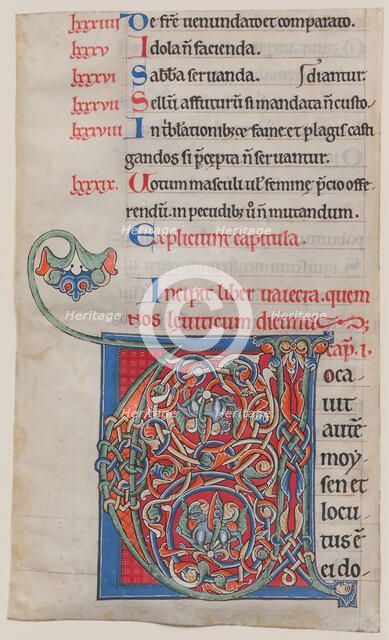 lxxxiiii De fr̄e uenundato et comparato.
lxxxv Idola n̄ facienda.
lxxxvi Sabb̄a seruanda. ſdiantur.
lxxxvii Sellū affuturū si mandata n̄ custo
lxxxviii In t̄blationibȝ & fame et plagis casti
gandos si p̄cepta n̄ seruantur.
lxxxix. Uotum masculi ul' femine p̄cio offe
rendū. in pecudibȝ u̅o n̄ mutandum.
Expliciunt capitula.
Incipit liber uaiecra. quem
nos leuiticum dicimus;
cap̄. I.
oca
uit
autē
moy
sen et
locu
tus ē
ei do